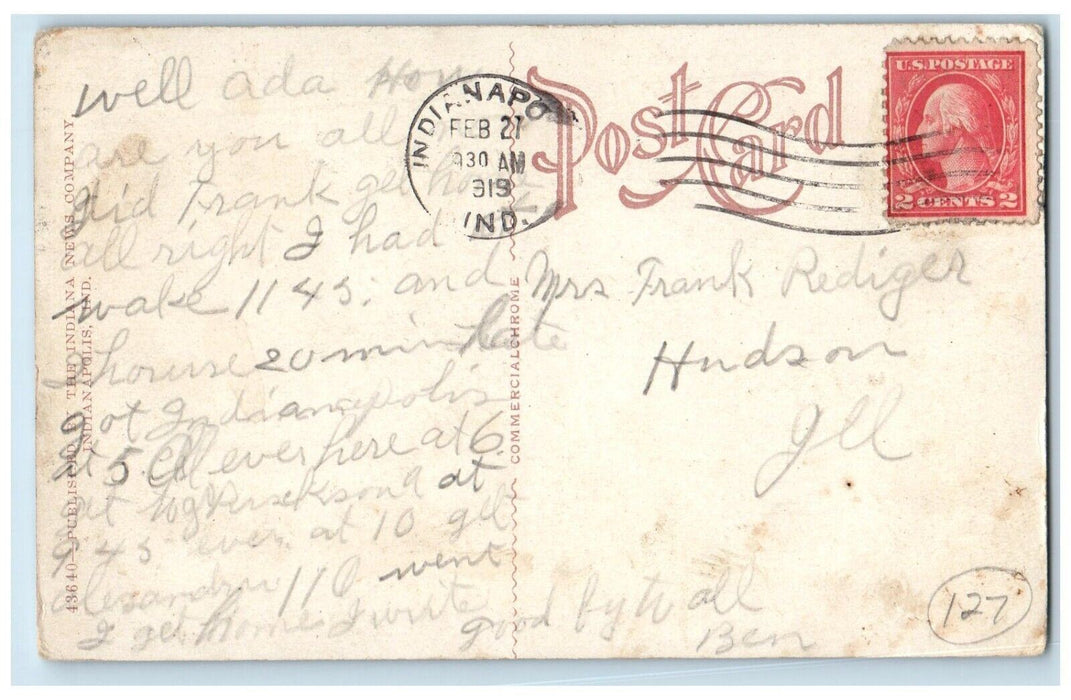 well ada How
are you all
did Frank get home
all right I had
wake 11 45. and
2 hourse 20 min late
got Indianapolis
at 5. ever here at 6.
at at
9 45 ever at 10 get
alexandria 11 0 went
I get home I write
good by to all
Ben
INDIANAPO
FEB 27
930 AM
919
IND.
Post Card
U.S. POSTAGE
2 CENTS 2
Mrs Frank Rediger
Hudson
Ill
127
43640—PUBLISHED BY THE INDIANA NEWS COMPANY,
INDIANAPOLIS, IND.
COMMERCIALCHROME